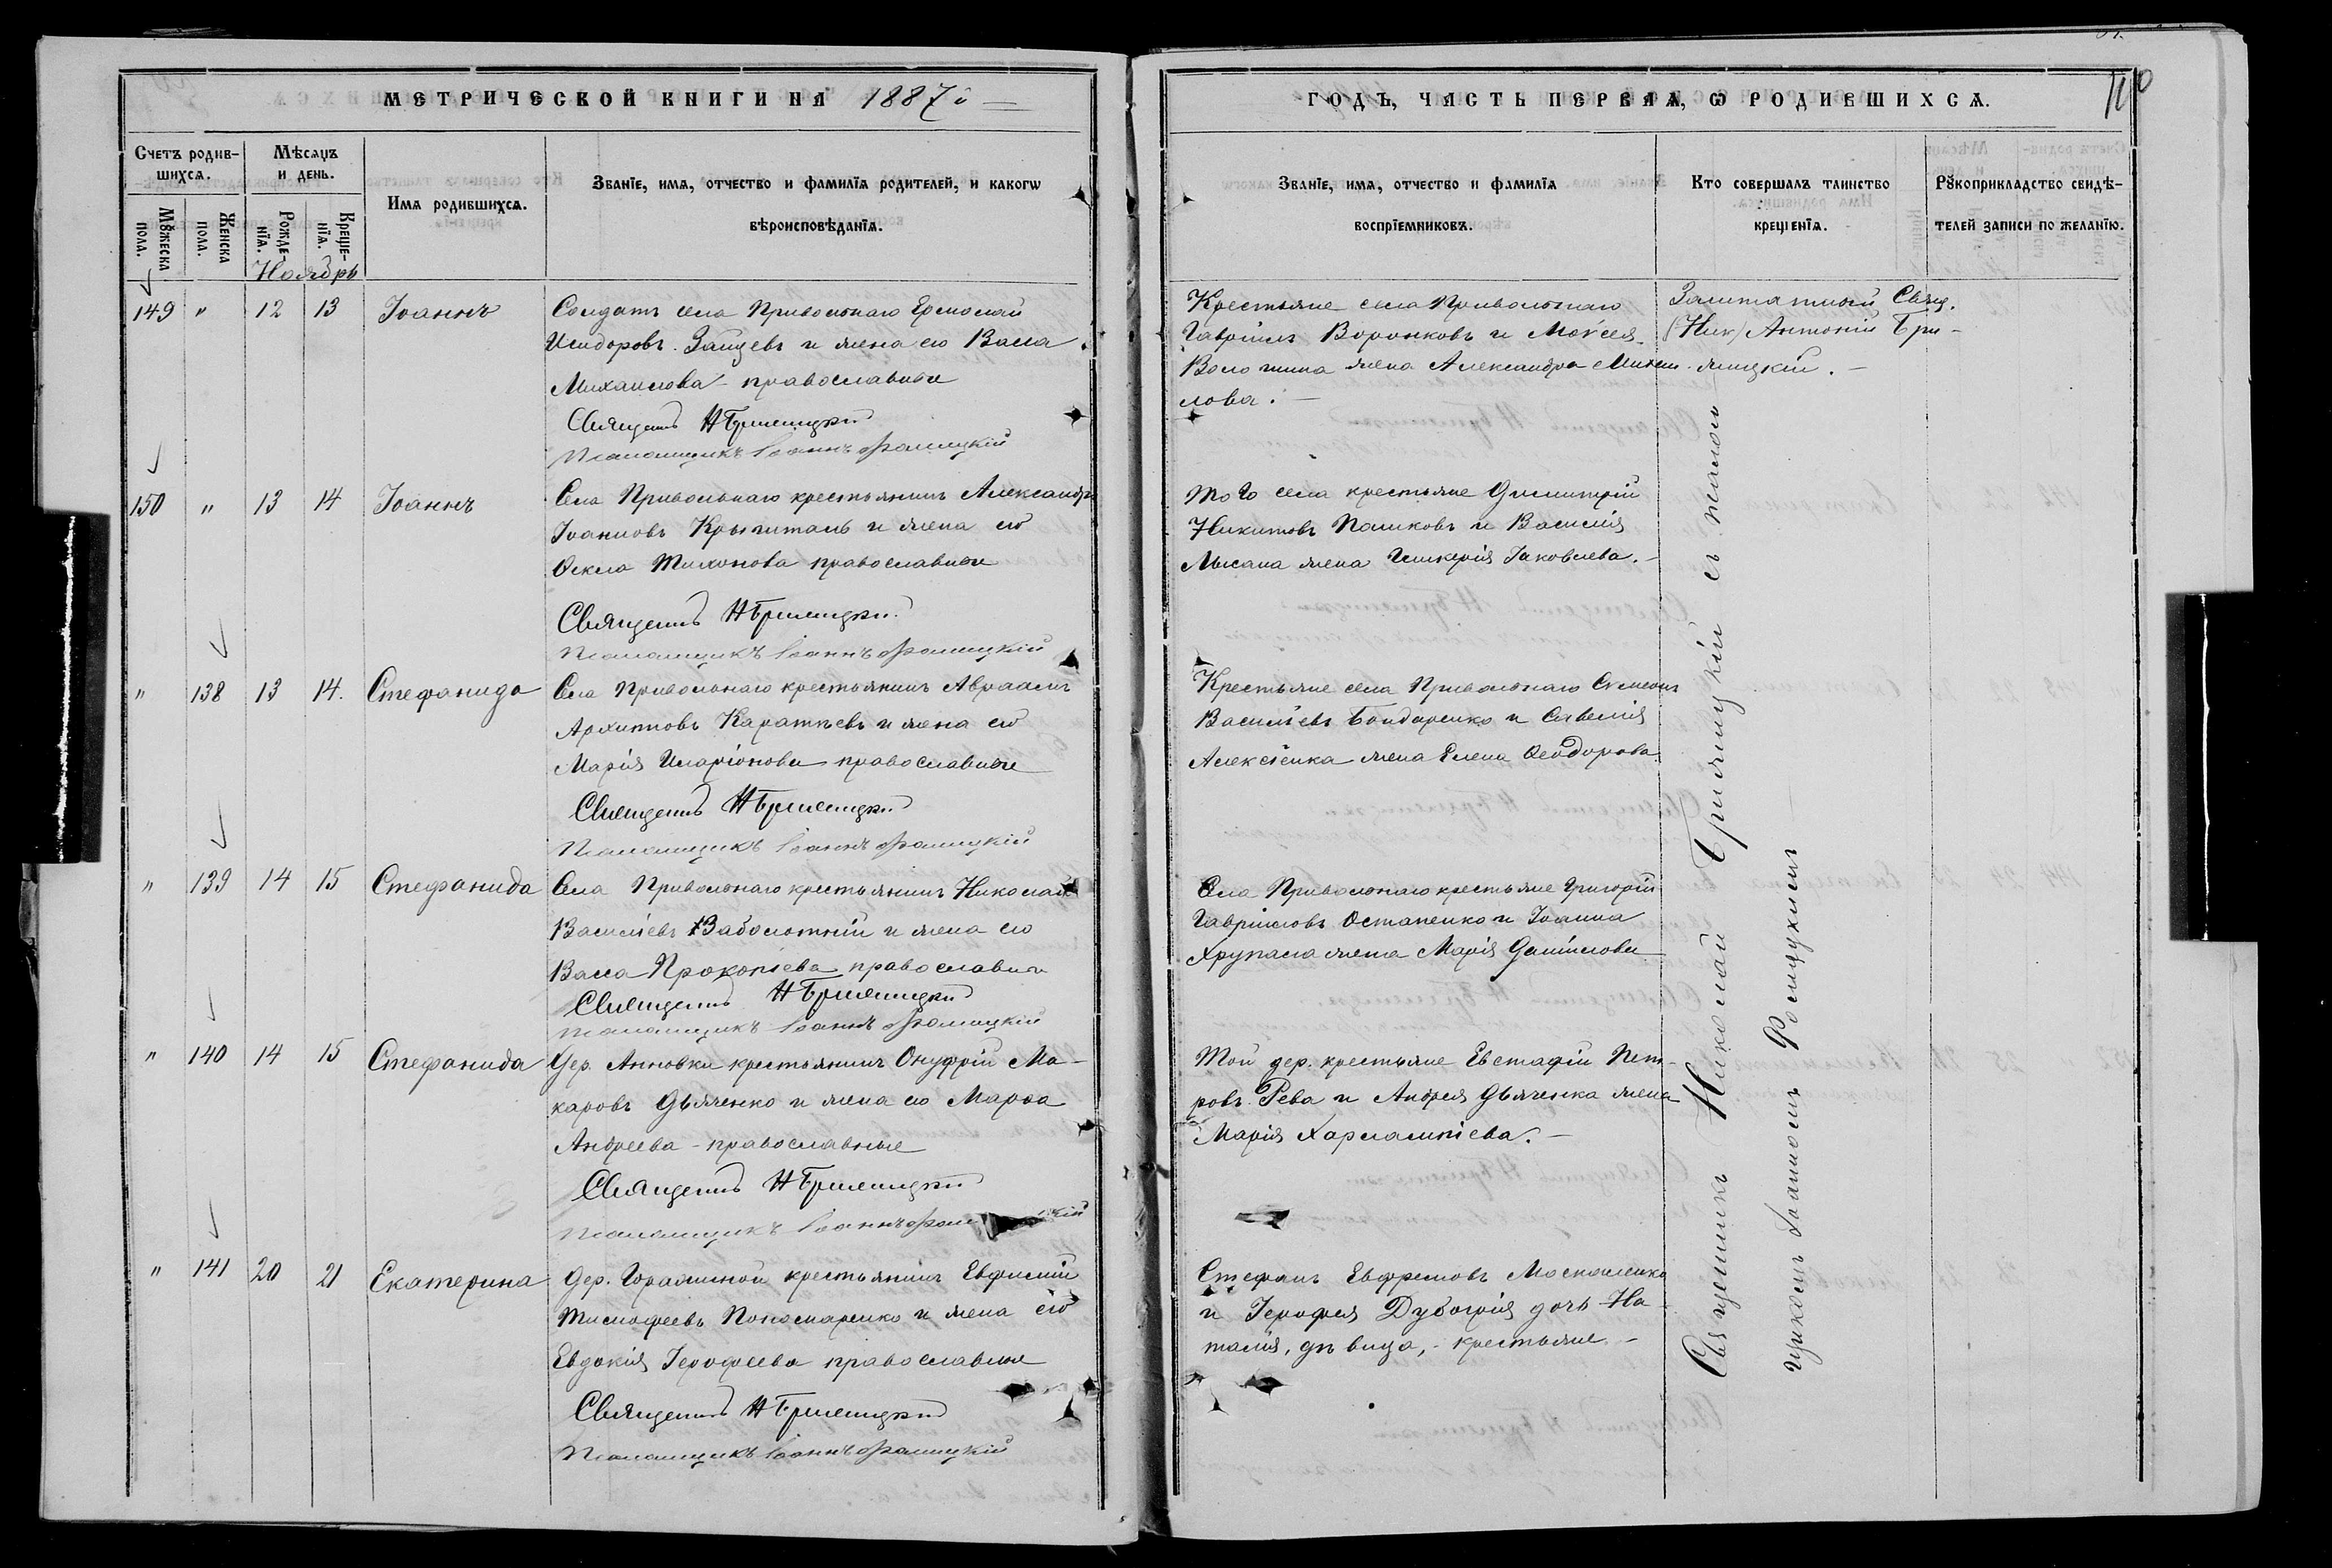 МЕТРИЧЕСКОЙ КНИГИ НА 1887й
Счетъ родив-
шихся.
Мѣсяцъ
и день.
Имя родившихся.
Званіе, имя, отчество и фамилія родителей, и какогѡ
вѣроисповѣданія.
Мꙋжеска
пола.
Женска
пола.
Рожде-
нія.
Креще-
нія.
Ноябрь
149 " 12 13 Іоаннъ
Солдатъ села Привольнаго Ермолай
Исидоровъ Зайцевъ и жена его Васса
Михаилова - православные
Священникъ Н Брилинцкій
Псаломщикъ Іоаннъ
150 " 13 14 Іоаннъ
Села Привольнаго крестьянинъ Александръ
Іоанновъ и жена его
Ѳекла Тихонова православные
Священникъ Н
Псаломщикъ Іоаннъ
" 138 13 14. Стефанида
Села Привольнаго крестьянинъ Авраамъ
Архиповъ и жена его
Марія Иларіонова православные
Священникъ Н
Псаломщикъ Іоаннъ
" 139 14 15 Стефанида
Села Привольнаго крестьянинъ Николай
Василіевъ Заболотній и жена его
Васса Прокопіева православные
Священникъ Н
Псаломщикъ Іоаннъ
" 140 14 15 Стефанида
Дер. Анновки крестьянинъ Онуфрій Ма-
каровъ Дьяченко и жена его Марѳа
Андреева - православные
Священникъ Н
Псаломщикъ Іоаннъ
" 141 20 21 Екатерина
Дер. Горожиной крестьянинъ Евфимій
Тимофеевъ Пономаренко и жена его
Евдокія Герофеева православные
Священникъ Н
Псаломщикъ Іоаннъ
ГОДЪ, ЧАСТЬ ПЕРВАЯ, Ѡ РОДИВШИХСЯ.
110
Званіе, имя, отчество и фамилія
воспріемниковъ.
Кто совершалъ таинство
крещенія.
Рꙋкоприкладство свидѣ-
телей записи по желанію.
Крестьяне села Привольнаго
Гавріилъ Воронковъ и Моѵсея
Волошина жена Александра Михаи-
лова. -
Заштатный Свящ.
Антоній Бри-
Того села крестьяне Димитрій
Никитовъ Пашковъ и Василія
Лысака жена Гликерія Іаковлева. -
Крестьяне села Привольнаго Симеонъ
Василіевъ Бондаренко и Савелія
Алексѣенка жена Елена Ѳеодорова
Села Привольнаго крестьяне Григорій
Гавріиловъ Остапенко и Іоанна
Хрупала жена Марія Даніилова
Той дер. крестьяне Евстафій Пет-
ровъ Рева и Андрея Дьяченка жена
Марія Харлампіева. -
Стефанъ Евфремовъ Москаленко
и Герофея дочь На-
талія, дѣвица, - крестьяне -
Священникъ Николай съ псалом
щикомъ Іоанномъ